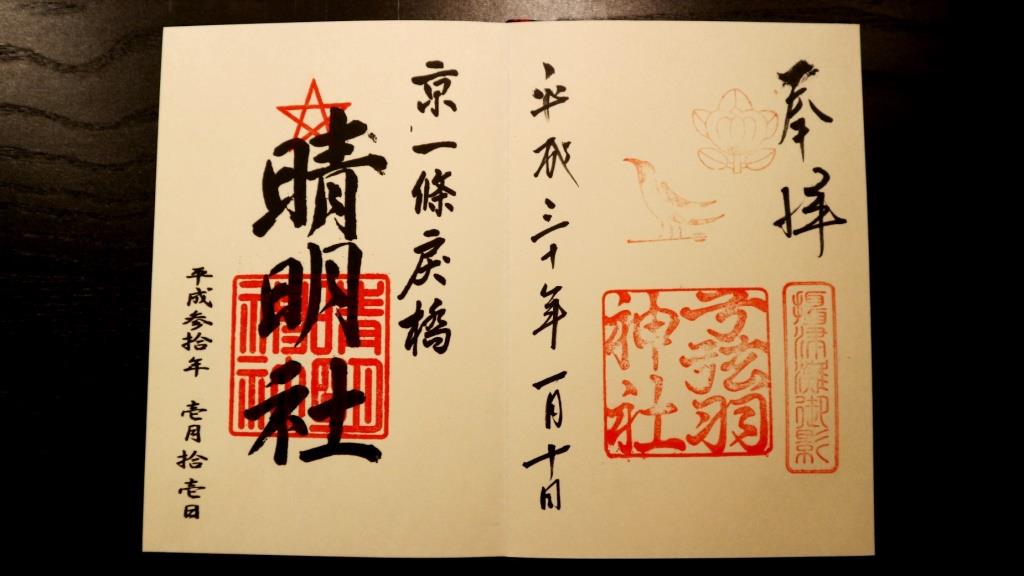 奉拝
摂津灘御影
弓弦羽
神社
平成三十年 一月十日
京一條戻橋
晴明社
晴明
神社
平成参拾年 壱月拾壱日